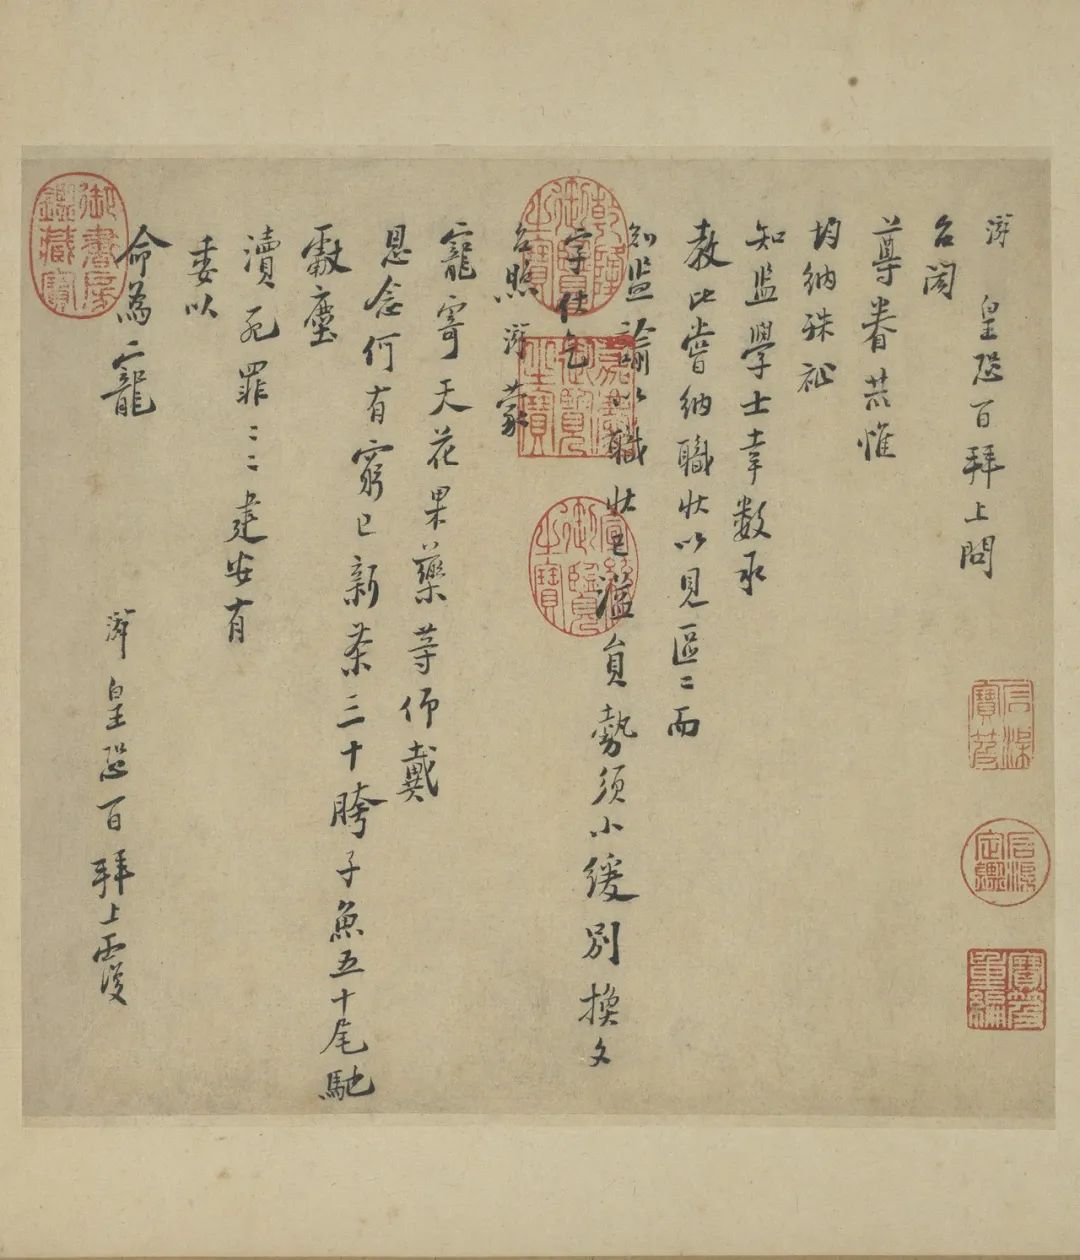 游皇恐百拜上問
台閤
尊眷共惟
均納殊祉
知監學士幸數承
教比嘗納職狀以見區二而
知監諭以職狀已溢員勢須小緩別換文
字伏乞
台照游蒙
寵寄天花果藥等仰戴
恩念何有窮已新茶三十胯子魚五十尾馳
獻塵
瀆死罪二二建安有
委以
命為寵
游皇恐百拜上覆
乾隆御覽之寶
嘉慶御覽之寶
宣統御覽之寶
石渠寶笈
石渠定鑑
寶笈重編
御書房鑑藏寶